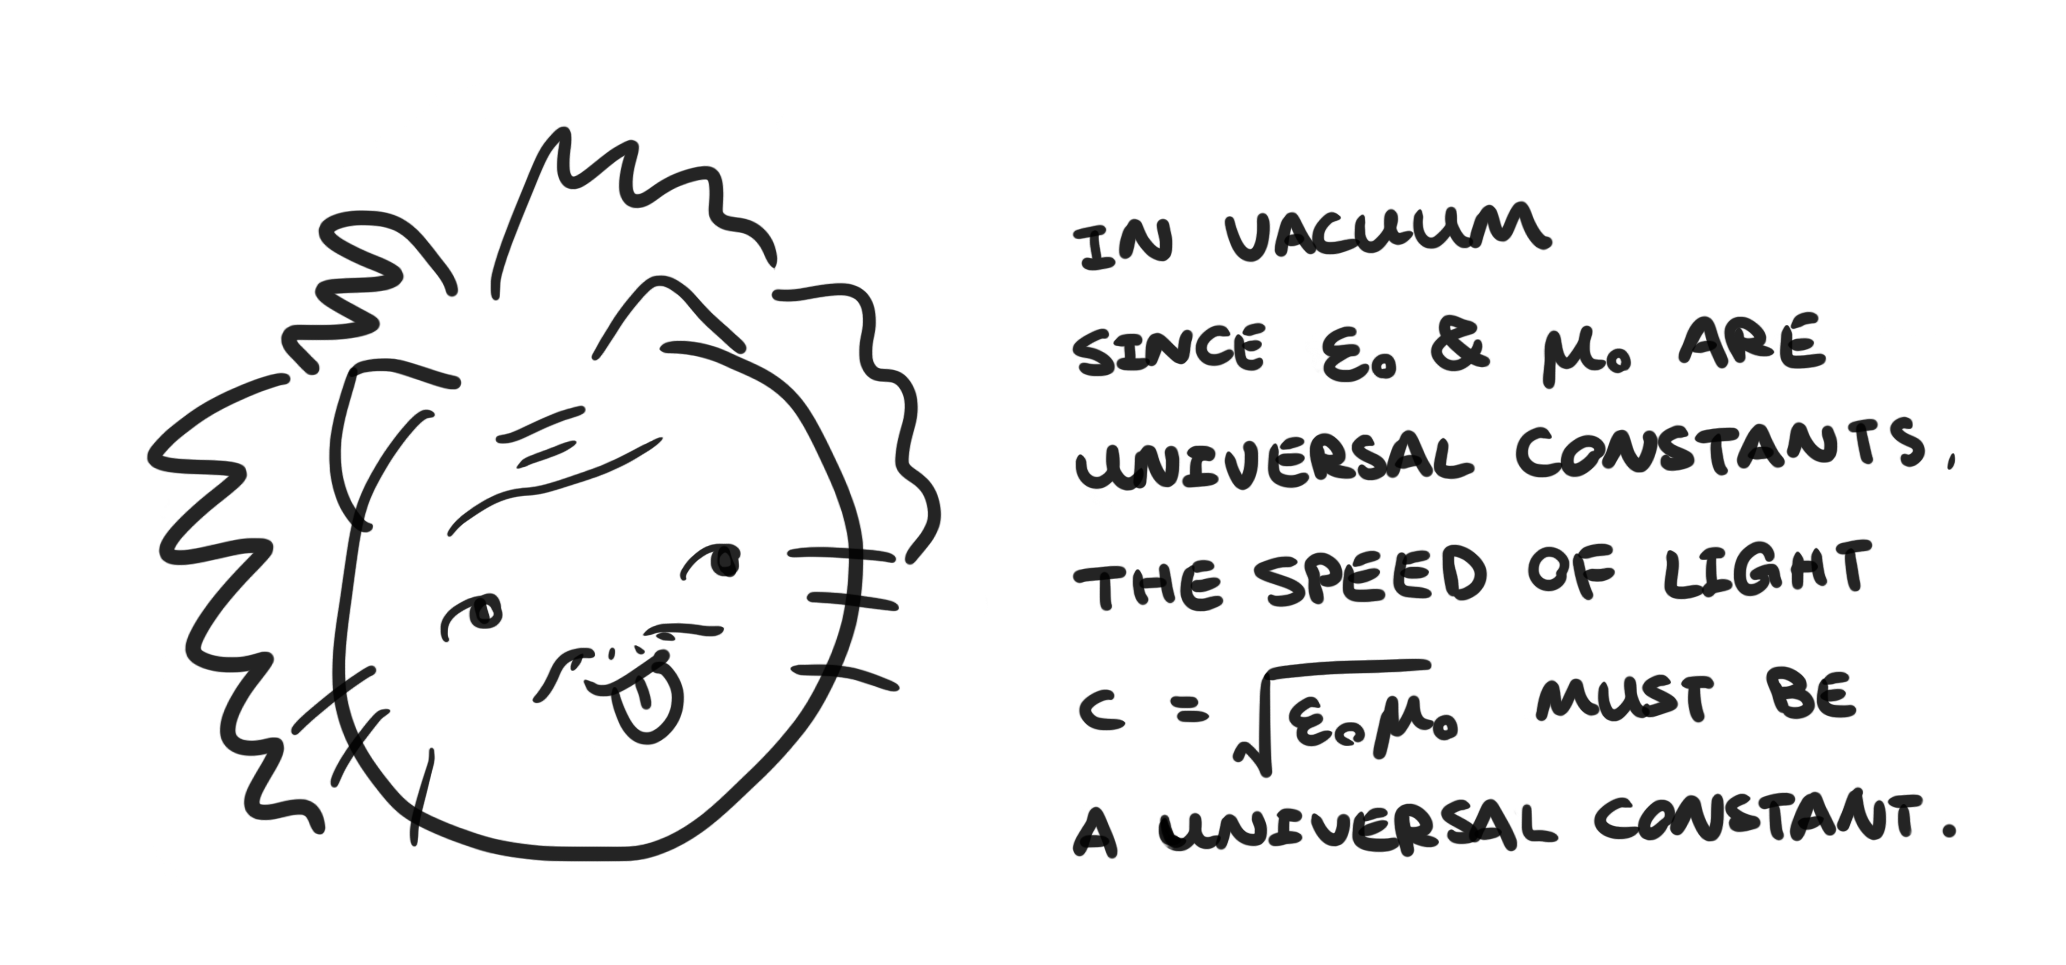 IN VACUUM
SINCE ε₀ & μ₀ ARE
UNIVERSAL CONSTANTS,
THE SPEED OF LIGHT
C = √ε₀μ₀ MUST BE
A UNIVERSAL CONSTANT.